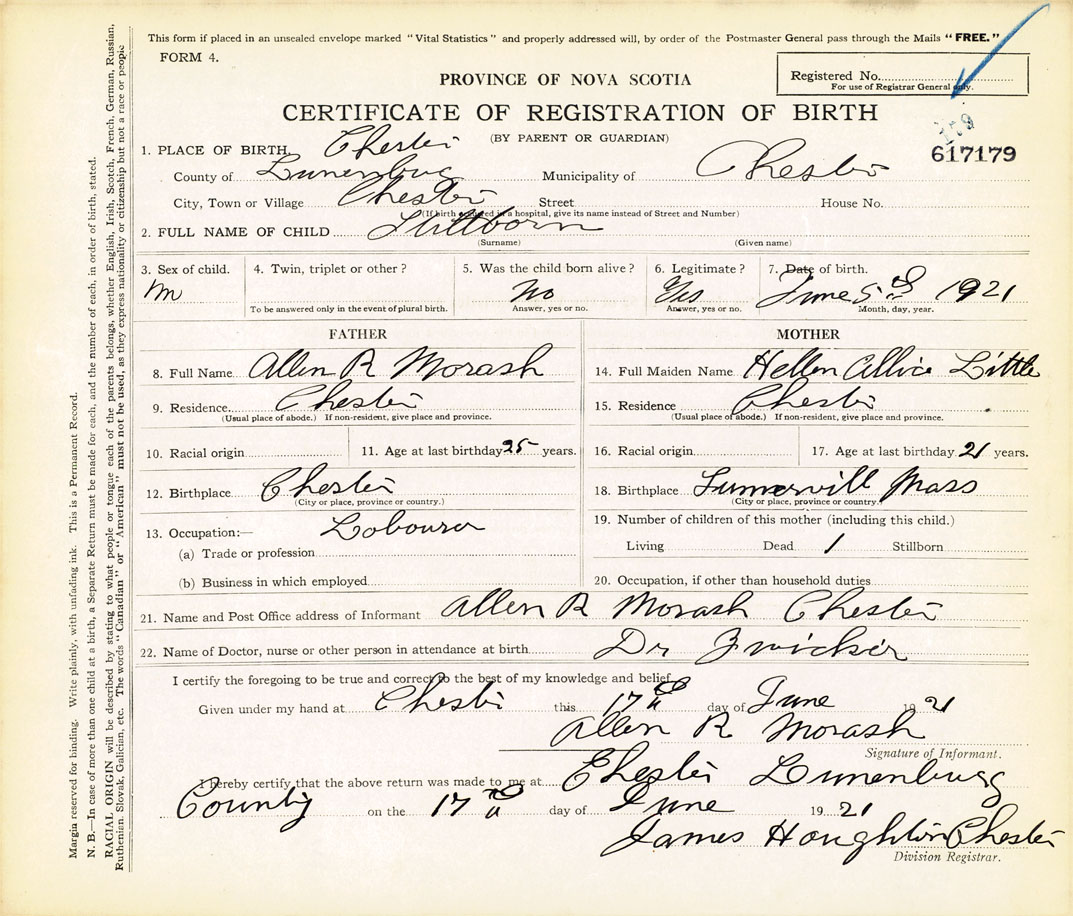 This form if placed in an unsealed envelope marked "Vital Statistics" and properly addressed will, by order of the Postmaster General pass through the Mails "FREE."
FORM 4.
PROVINCE OF NOVA SCOTIA
Registered No.
For use of Registrar General only.
CERTIFICATE OF REGISTRATION OF BIRTH
(BY PARENT OR GUARDIAN)
617179
1. PLACE OF BIRTH Chester
County of Lunenburg Municipality of Chester
City, Town or Village Chester Street House No.
(If birth occurred in a hospital, give its name instead of Street and Number)
2. FULL NAME OF CHILD Stillborn
(Surname) (Given name)
3. Sex of child. 4. Twin, triplet or other? 5. Was the child born alive? 6. Legitimate? 7. Date of birth.
m No Yes June 5th 1921
To be answered only in the event of plural birth. Answer, yes or no. Answer, yes or no. Month, day, year.
FATHER MOTHER
8. Full Name Allen R Morash 14. Full Maiden Name Hellen Allice Little
9. Residence Chester 15. Residence Chester
(Usual place of abode.) If non-resident, give place and province. (Usual place of abode.) If non-resident, give place and province.
10. Racial origin 11. Age at last birthday 25 years. 16. Racial origin 17. Age at last birthday 21 years.
12. Birthplace Chester 18. Birthplace Sumervill Mass
(City or place, province or country.) (City or place, province or country.)
13. Occupation:— Labourer 19. Number of children of this mother (including this child.)
(a) Trade or profession Living Dead 1 Stillborn
(b) Business in which employed 20. Occupation, if other than household duties
21. Name and Post Office address of Informant Allen R Morash Chester
22. Name of Doctor, nurse or other person in attendance at birth Dr Zwicker
I certify the foregoing to be true and correct to the best of my knowledge and belief.
Given under my hand at Chester this 17th day of June 1921
Allen R Morash
Signature of Informant.
I hereby certify that the above return was made to me at Chester Lunenburg
County on the 17th day of June 1921
James Houghton Chester
Division Registrar.
Margin reserved for binding. Write plainly, with unfading ink. This is a Permanent Record.
N. B.—In case of more than one child at a birth, a Separate Return must be made for each, and the number of each, in order of birth, stated.
RACIAL ORIGIN will be described by stating to what people or tongue each of the parents belongs, whether English, Irish, Scotch, French, German, Russian,
Ruthenian, Slovak, Galician, etc. The words "Canadian" or "American" must not be used, as they express nationality or citizenship but not a race or people